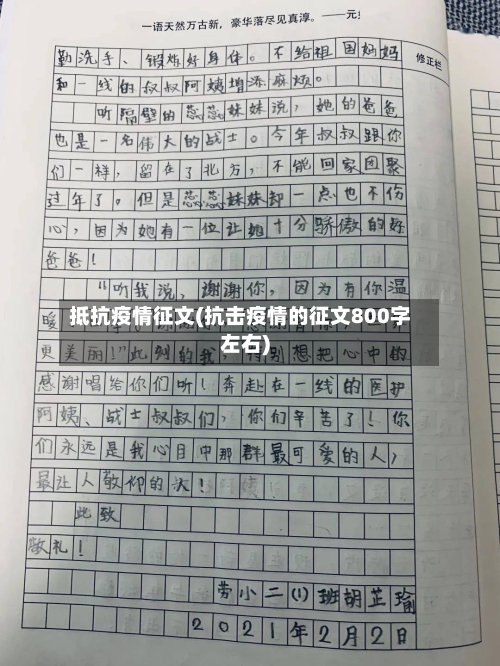 一语天然万古新，豪华落尽见真淳。——元
修正栏
勤洗手、锻炼好身体。不给祖国妈妈
和一线的叔叔阿姨增添麻烦。
听隔壁的蕊蕊妹妹说，她的爸爸
也是一名伟大的战士。今年叔叔跟你
们一样，留在了北方，不能回家团聚
过年了。但是蕊蕊妹妹却一点也不伤
心，因为她有一位让她十分骄傲的好
爸爸！
"听我说，谢谢你，因为有你温
抵抗疫情征文(抗击疫情的征文800字
左右)
暖
更美丽！"此刻的我 特别想把心中的
感谢唱给你们听！奔赴在一线的医护
阿姨、战士叔叔们，你们辛苦了！你
们永远是我心目中那群最可爱的人，
最让人敬仰的人！
此致
敬礼！
劳小二(1)班胡芷瑜
2021年2月2日